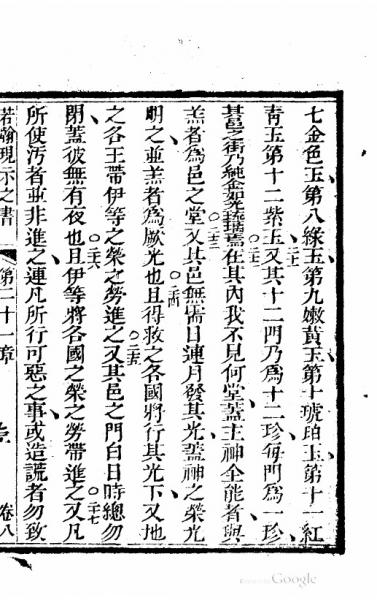 七金色玉第八綠玉第九嫩黃玉第十琥珀玉第十一紅
青玉第十二紫玉○二十一又其十二門乃為十二珍每門為一珍
其邑之街乃純金○二十二在其內我不見何堂蓋主神全能者與
羔者為邑之堂○二十三又其邑無需日連月發其光蓋神之榮光
明之並羔者為厥光也○二十四且得救之各國將行其光下又地
之各王帶伊等之榮之勞進之○二十五又其邑之門白日時總勿
閉蓋彼無有夜也○二十六且伊等將各國之榮之勞帶進之○二十七又凡
所使污者並非進之連凡所行可惡之事或造謊者勿致
若翰現示之書 第二十一章 卷八
Google